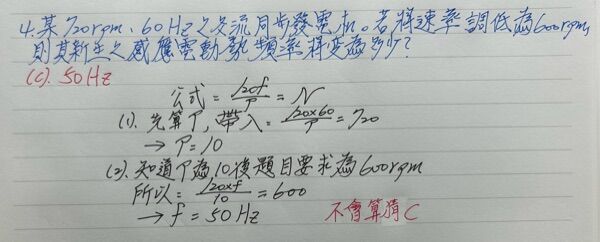 4.某720rpm、60Hz之交流同步發電机。若將速率調低為600rpm,
則其新生之感應電動勢頻率將变為多少?
(C). 50Hz
公式 = 120f/P = N
(1). 先算P, 帶入 = 120×60/P = 720
→ P = 10
(2). 知道P為10後題目要求為600rpm
所以 = 120×f/10 = 600
→ f = 50Hz 不會算猜C